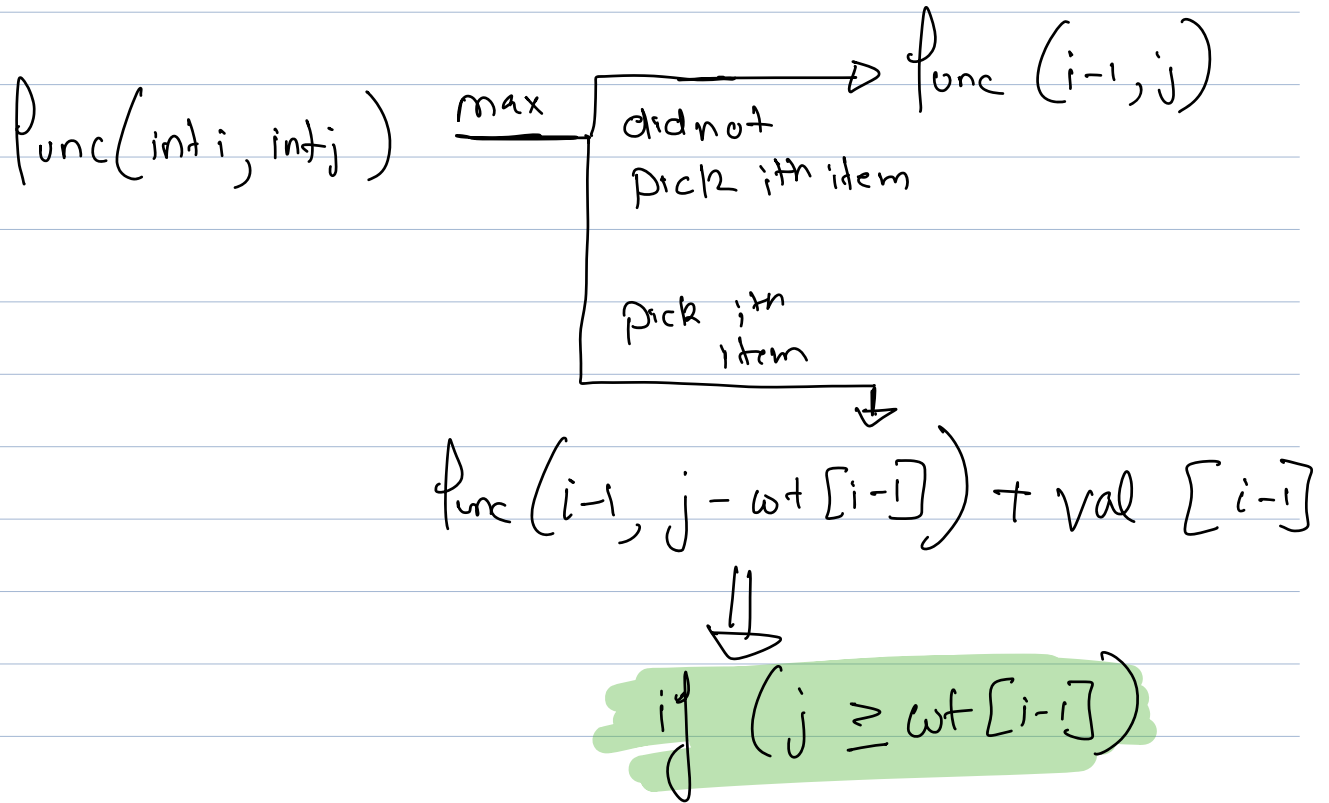 func(int i, int j) max func (i-1, j)
did not
pick ith item
pick ith
item
func(i-1, j - wt[i-1]) + val [i-1]
if (j ≥ wt[i-1])